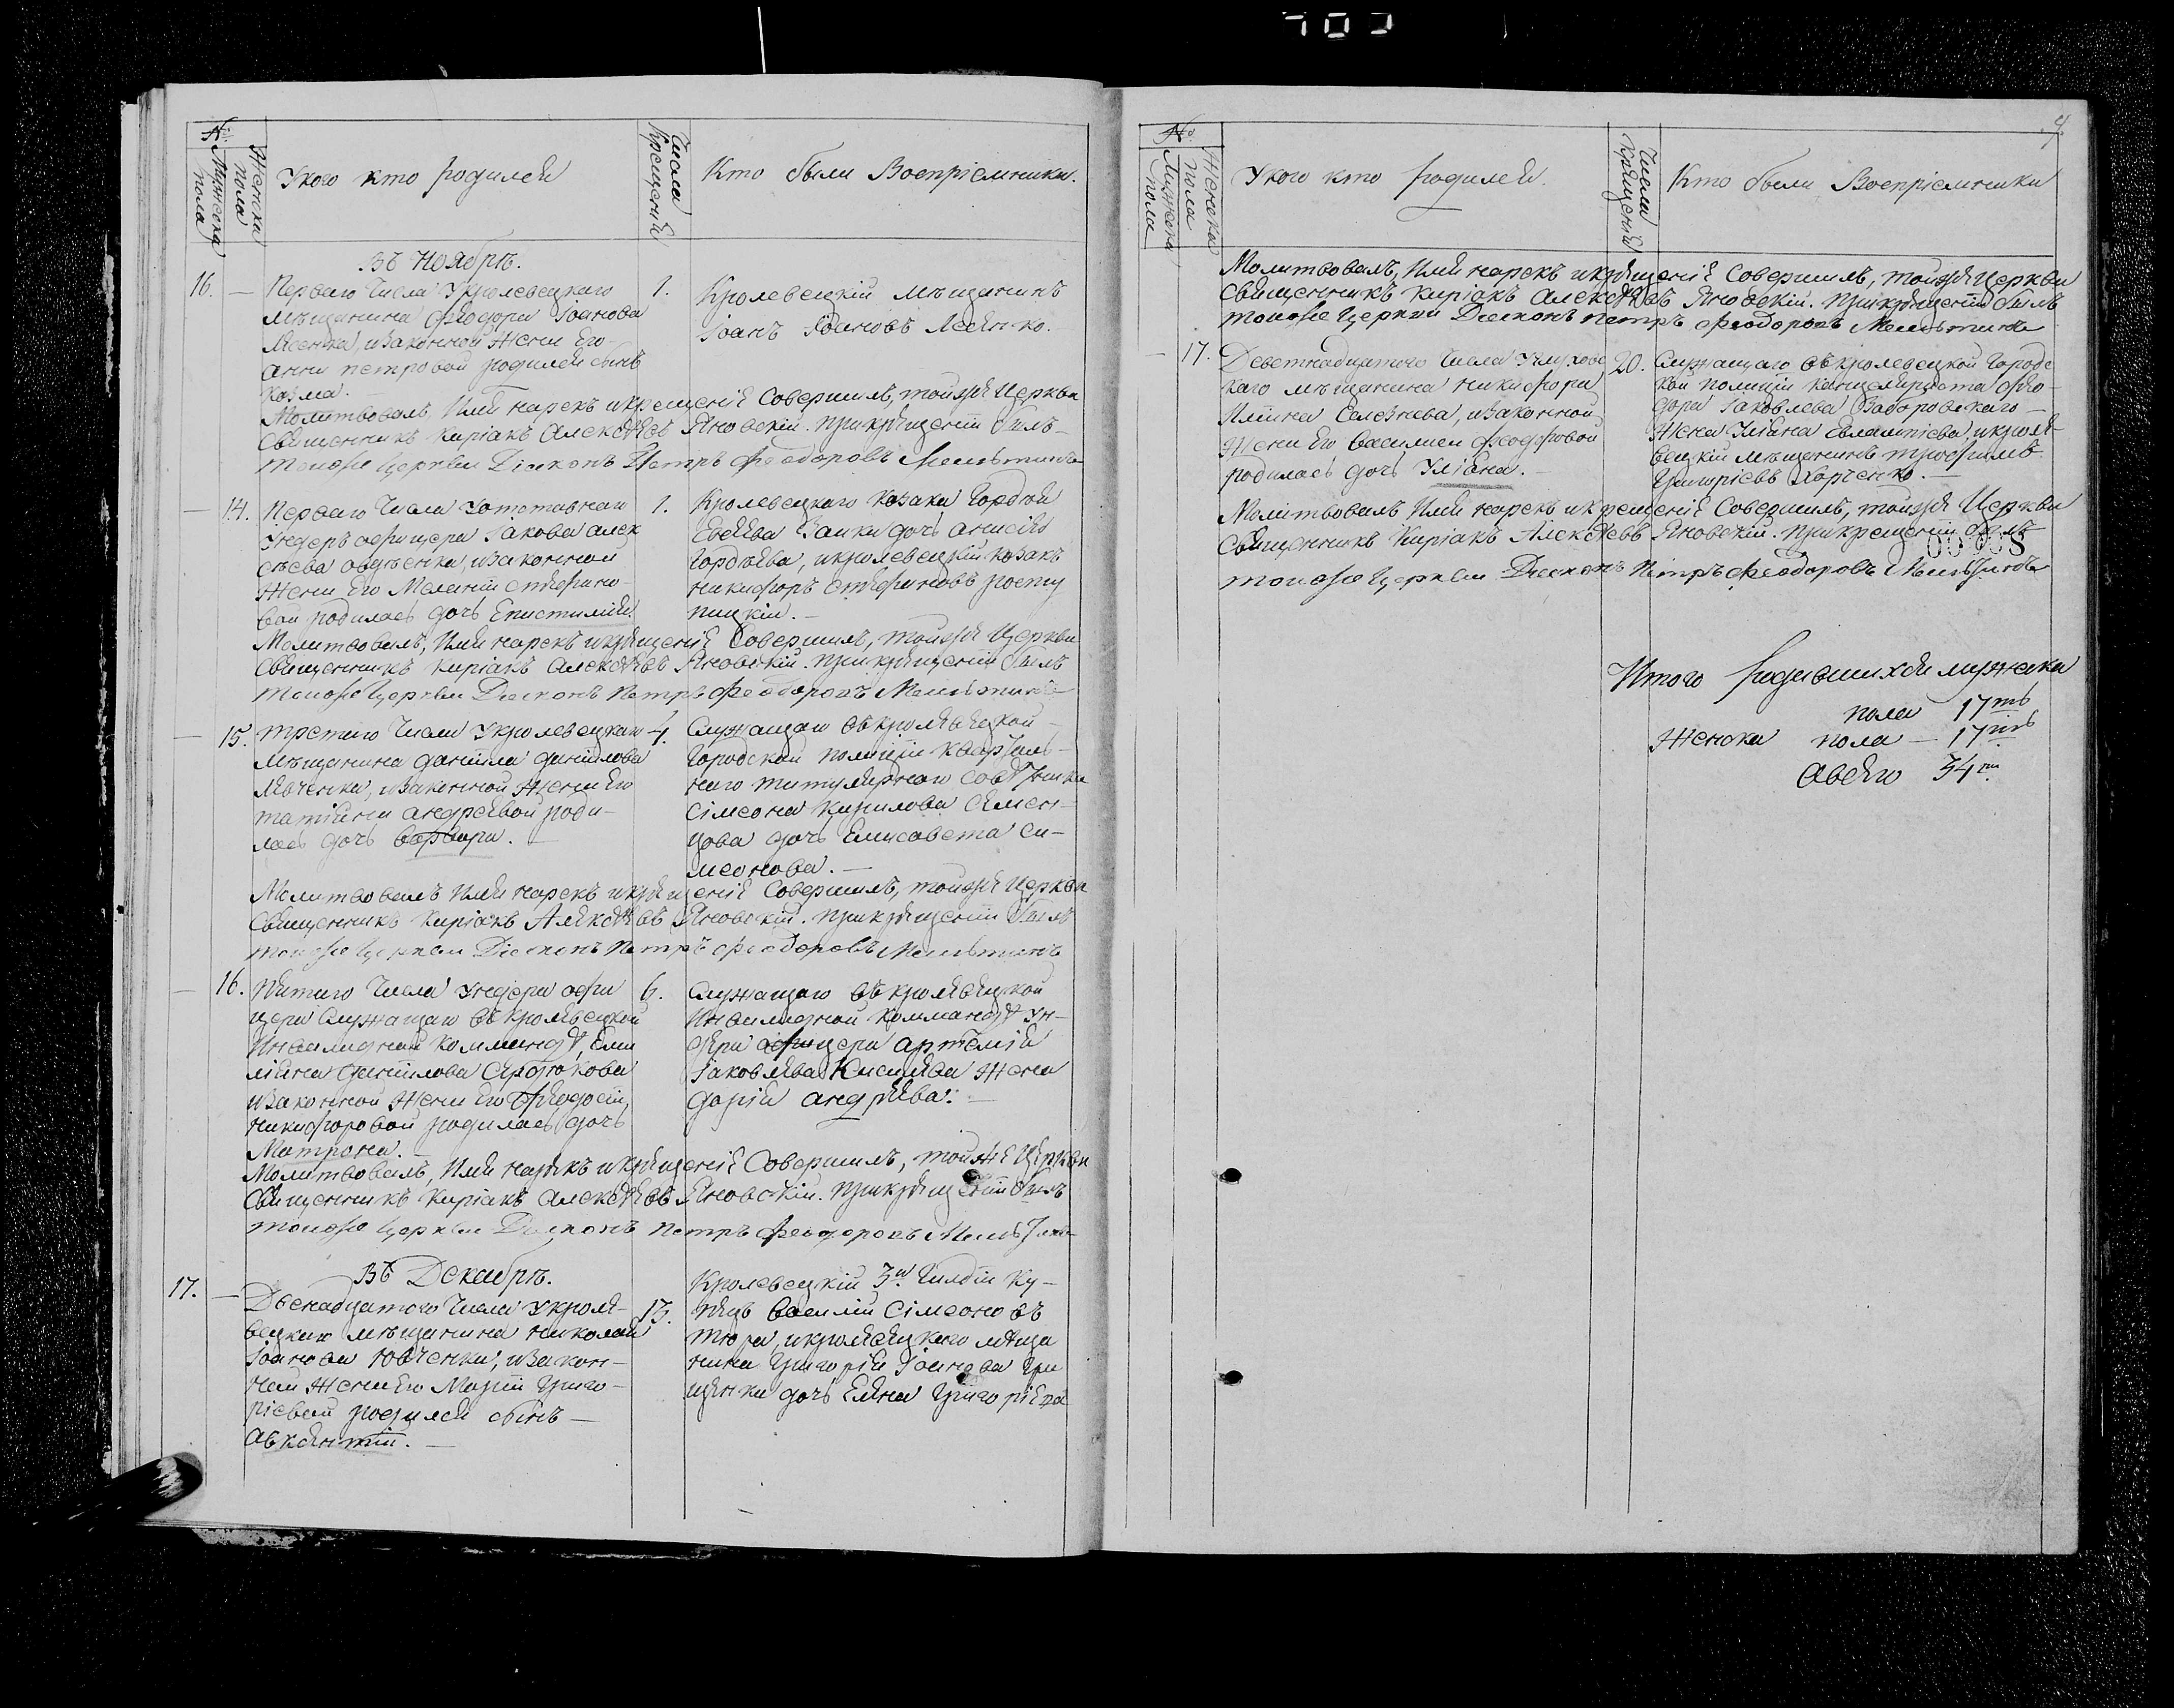 №
Мужеска пола
Женска пола
У кого кто родился
Числа Крещенія
Кто были Воспріемники.
Въ Ноябрѣ.
16. — Перваго Числа У кролевецкаго
мѣщанина Феодора Іоанова
и законной жены Его
анны петровой родился сынъ
козма.
1.
Кролевецкій мѣщанинъ
Іоанъ Іоановъ
Молитвовалъ, Имя нарекъ и крещеніе Совершилъ, тойже Церкви
Священникъ Киріакъ Алексѣевъ Яновскій. при крещеніи былъ
тоиже Церкви Діаконъ Петръ Феодоровъ
— 14. Перваго Числа У отставнаго
Ундеръ офицера Іакова алек
сѣева авдѣенка, и законной
жены Его Меланіи стефано-
вой родилась дочь Епистимія.
1.
Кролевецкаго козака Гордѣя
Заики дочь анисія
Гордѣева, и кролевецкій козакъ
никифоръ стефановъ
Молитвовалъ, Имя нарекъ и крещеніе Совершилъ, тойже Церкви
Священникъ Киріакъ Алексѣевъ Яновскій. при крещеніи былъ
тоиже Церкви Діаконъ Петръ Феодоровъ
— 15. третяго Числа У кролевецкаго
мѣщанина даніила даніилова
и законной жены Его
татіяны андреевой роди-
лась дочь варвара. —
4.
Служащаго въ кролевецкой
городской полиціи квартал-
наго титулярнаго совѣтника
Сімеона Кирилова Семен-
цова дочь Елисавета си-
меонова. —
Молитвовалъ Имя нарекъ и крещеніе Совершилъ, тойже Церкви
Священникъ Киріакъ Алексѣевъ Яновскій. при крещеніи былъ
тоиже Церкви Діаконъ Петръ Феодоровъ
— 16. Пятаго Числа Ундера офи
цера Служащаго въ кролевецкой
Инвалидной коммандѣ, Еми
ліяна даніилова
и законной жены Его Феодосіи,
никифоровой родилась дочь
Матрона.
6.
Служащаго въ кролевецкой
Инвалидной коммандѣ Ун-
дера офицера артемія
Іаковлева Киселева жена
дарія андреева. —
Молитвовалъ, Имя нарекъ и крещеніе Совершилъ, тойже Церкви
Священникъ Киріакъ Алексѣевъ Яновскій. при крещеніи былъ
тоиже Церкви Діаконъ Петръ Феодоровъ
Въ Декабрѣ.
17. — Двенадцатого Числа У кроле-
вецкаго мѣщанина николая
Іоанова Ювченка, и закон-
ной жены Его Маріи Григо-
ріевой родился сынъ —
Авксентій. —
13.
Кролевецкій 3й Гилдіи Ку-
пецъ Василій Сімеоновъ
тюра, и кролевецкаго мѣща
нина Григорія Іоанова Гри
ценка дочь Елена Григоріева
4
№
Мужеска пола
Женска пола
У кого кто родился.
Числа Крещенія
Кто были Воспріемники
Молитвовалъ, Имя нарекъ и крещеніе Совершилъ, тойже Церкви
Священникъ Киріакъ Алексѣевъ Яновскій. при крещеніи былъ
тоиже Церкви Діаконъ Петръ Феодоровъ
— 17. Деветнадцатого Числа У глуховс
каго мѣщанина никифора
Иліина Селезнева, и законной
жены Его Василисы Феодоровой
родилась дочь Уліана. —
20.
Служащаго въ кролевецкой Городс
кой полиціи канцеляриста Фео-
дора Іаковлева Заборовскаго —
жена Уліана Евлампіева, и кроле-
вецкій мѣщанинъ трофимъ
Григоріевъ Харченко. —
Молитвовалъ Имя нарекъ и крещеніе Совершилъ, тойже Церкви
Священникъ Киріакъ Алексѣевъ Яновскій. при крещеніи былъ
тоиже Церкви Діаконъ Петръ Феодоровъ
00908
Итого родившихся мужеска
пола 17ть
Женска пола — 17ть
а всего 34ри